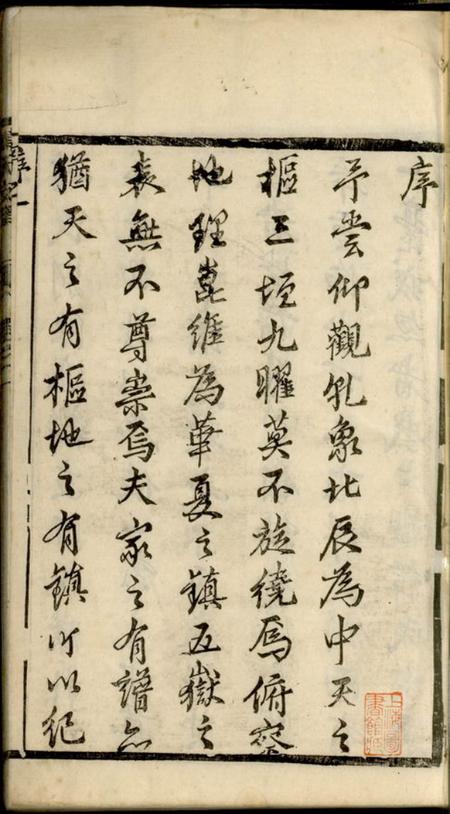 序
予嘗仰觀乳象北辰為中天之
樞三垣九曜莫不旋繞焉俯察
地理崑維為華夏之鎮五嶽之
表無不尊崇焉夫家之有譜亦
猶天之有樞地之有鎮所以紀
上海圖書館藏